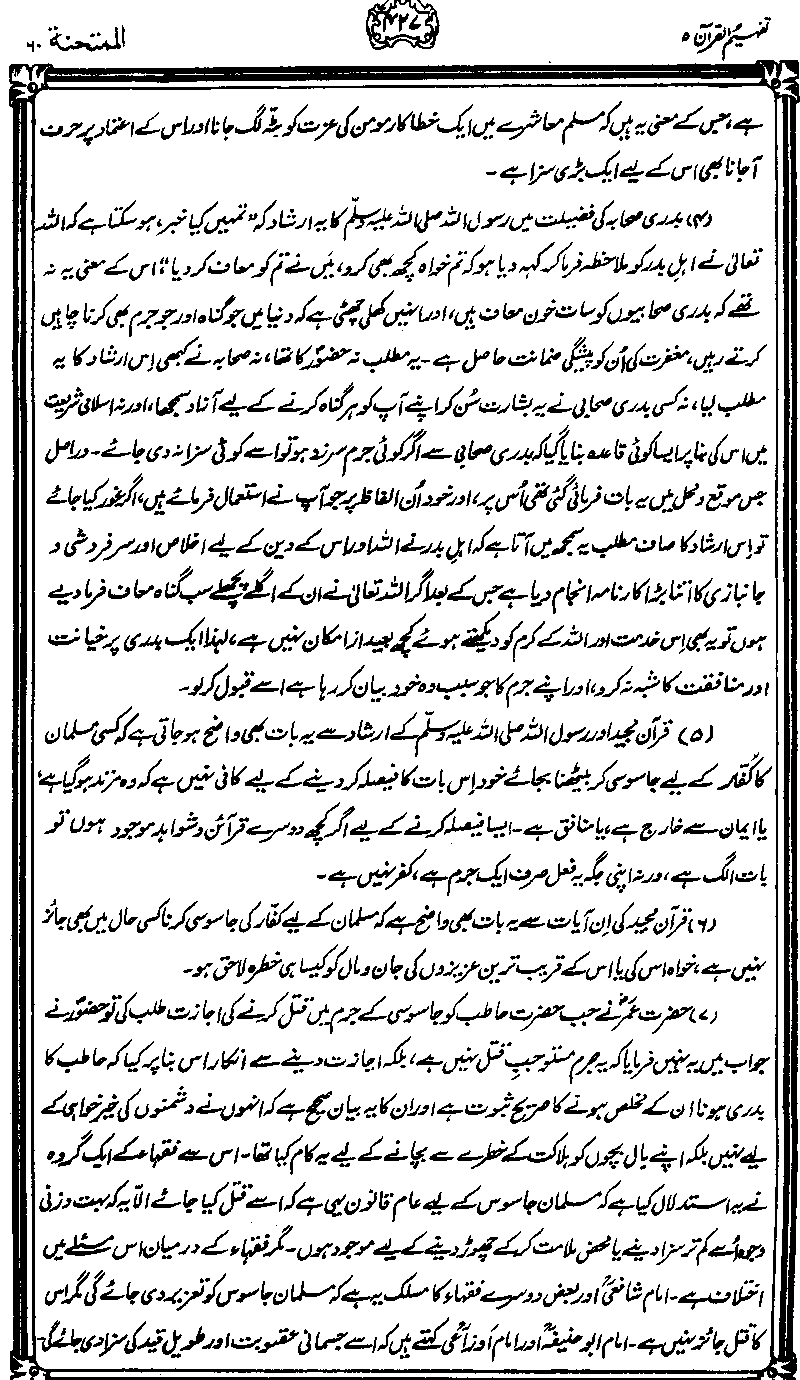 تفہیم القرآن ۵
۴۲۷
الممتحنۃ ۶۰
ہے، جس کے معنی یہ ہیں کہ مسلم معاشرے میں ایک خطا کار مومن کی عزت کو بٹّہ لگ جانا اور اس کے اعتماد پر حرف
آجانا بھی اس کے لیے ایک بڑی سزا ہے۔
(۴) بدری صحابہ کی فضیلت میں رسول اللہ صلی اللہ علیہ وسلّم کا یہ ارشاد کہ ”تمہیں کیا خبر، ہو سکتا ہے کہ اللہ
تعالیٰ نے اہلِ بدر کو ملاحظہ فرما کر کہہ دیا ہو کہ تم خواہ کچھ بھی کرو، میں نے تم کو معاف کر دیا“، اس کے معنی یہ نہ
تھے کہ بدری صحابیوں کو سات خون معاف ہیں، اور انہیں کھلی چھٹی ہے کہ دنیا میں جو گناہ اور جو جرم بھی کرنا چاہیں
کرتے رہیں، مغفرت کی اُن کو پیشگی ضمانت حاصل ہے۔ یہ مطلب نہ حضورؐ کا تھا، نہ صحابہ نے کبھی اِس ارشاد کا یہ
مطلب لیا، نہ کسی بدری صحابی نے یہ بشارت سُن کر اپنے آپ کو ہر گناہ کرنے کے لیے آزاد سمجھا، اور نہ اسلامی شریعت
میں اس کی بنا پر ایسا کوئی قاعدہ بنایا گیا کہ بدری صحابی سے اگر کوئی جرم سرزد ہو تو اسے کوئی سزا نہ دی جائے۔ دراصل
جس موقع و محل میں یہ بات فرمائی گئی تھی اُس پر، اور خود اُن الفاظ پر جو آپ نے استعمال فرمائے ہیں، اگر غور کیا جائے
تو اِس ارشاد کا صاف مطلب یہ سمجھ میں آتا ہے کہ اہلِ بدر نے اللہ اور اس کے دین کے لیے اخلاص اور سرفروشی و
جانبازی کا اتنا بڑا کارنامہ انجام دیا ہے جس کے بعد اگر اللہ تعالیٰ نے ان کے اگلے پچھلے سب گناہ معاف فرما دیے
ہوں تو یہ بھی اِس خدمت اور اللہ کے کرم کو دیکھتے ہوئے کچھ بعید از امکان نہیں ہے، لہٰذا ایک بدری پر خیانت
اور منافقت کا شبہ نہ کرو، اور اپنے جرم کا جو سبب وہ خود بیان کر رہا ہے اسے قبول کر لو۔
(۵) قرآن مجید اور رسول اللہ صلی اللہ علیہ وسلّم کے ارشاد سے یہ بات بھی واضح ہو جاتی ہے کہ کسی مسلمان
کا کُفّار کے لیے جاسوسی کر بیٹھنا بجائے خود اِس بات کا فیصلہ کر دینے کے لیے کافی نہیں ہے کہ وہ مرتد ہو گیا ہے،
یا ایمان سے خارج ہے، یا منافق ہے۔ ایسا فیصلہ کرنے کے لیے اگر کچھ دوسرے قرائن و شواہد موجود ہوں تو
بات الگ ہے، ورنہ اپنی جگہ یہ فعل صرف ایک جرم ہے، کفر نہیں ہے۔
(۶) قرآن مجید کی اِن آیات سے یہ بات بھی واضح ہے کہ مسلمان کے لیے کفّار کی جاسوسی کرنا کسی حال میں بھی جائز
نہیں ہے، خواہ اس کی یا اس کے قریب ترین عزیزوں کی جان و مال کو کیسا ہی خطرہ لاحق ہو۔
(۷) حضرت عمرؓ نے جب حضرت حاطب کو جاسوسی کے جرم میں قتل کرنے کی اجازت طلب کی تو حضورؐ نے
جواب میں یہ نہیں فرمایا کہ یہ جرم مستوجبِ قتل نہیں ہے، بلکہ اجازت دینے سے انکار اس بنا پر کیا کہ حاطب کا
بدری ہونا ان کے مخلص ہونے کا صریح ثبوت ہے اور ان کا یہ بیان صحیح ہے کہ انہوں نے دشمنوں کی خیر خواہی کے
لیے نہیں بلکہ اپنے بال بچوں کو ہلاکت کے خطرے سے بچانے کے لیے یہ کام کیا تھا۔ اس سے فقہاء کے ایک گروہ
نے یہ استدلال کیا ہے کہ مسلمان جاسوس کے لیے عام قانون یہی ہے کہ اسے قتل کیا جائے الّا یہ کہ بہت وزنی
وجوہ اُسے کم تر سزا دینے یا محض ملامت کر کے چھوڑ دینے کے لیے موجود ہوں۔ مگر فقہاء کے درمیان اس مسئلے میں
اختلاف ہے۔ امام شافعیؒ اور بعض دوسرے فقہاء کا مسلک یہ ہے کہ مسلمان جاسوس کو تعزیر دی جائے گی مگر اس
کا قتل جائز نہیں ہے۔ امام ابو حنیفہؒ اور امام اَوزاعیؒ کہتے ہیں کہ اسے جسمانی عقوبت اور طویل قید کی سزا دی جائے گی